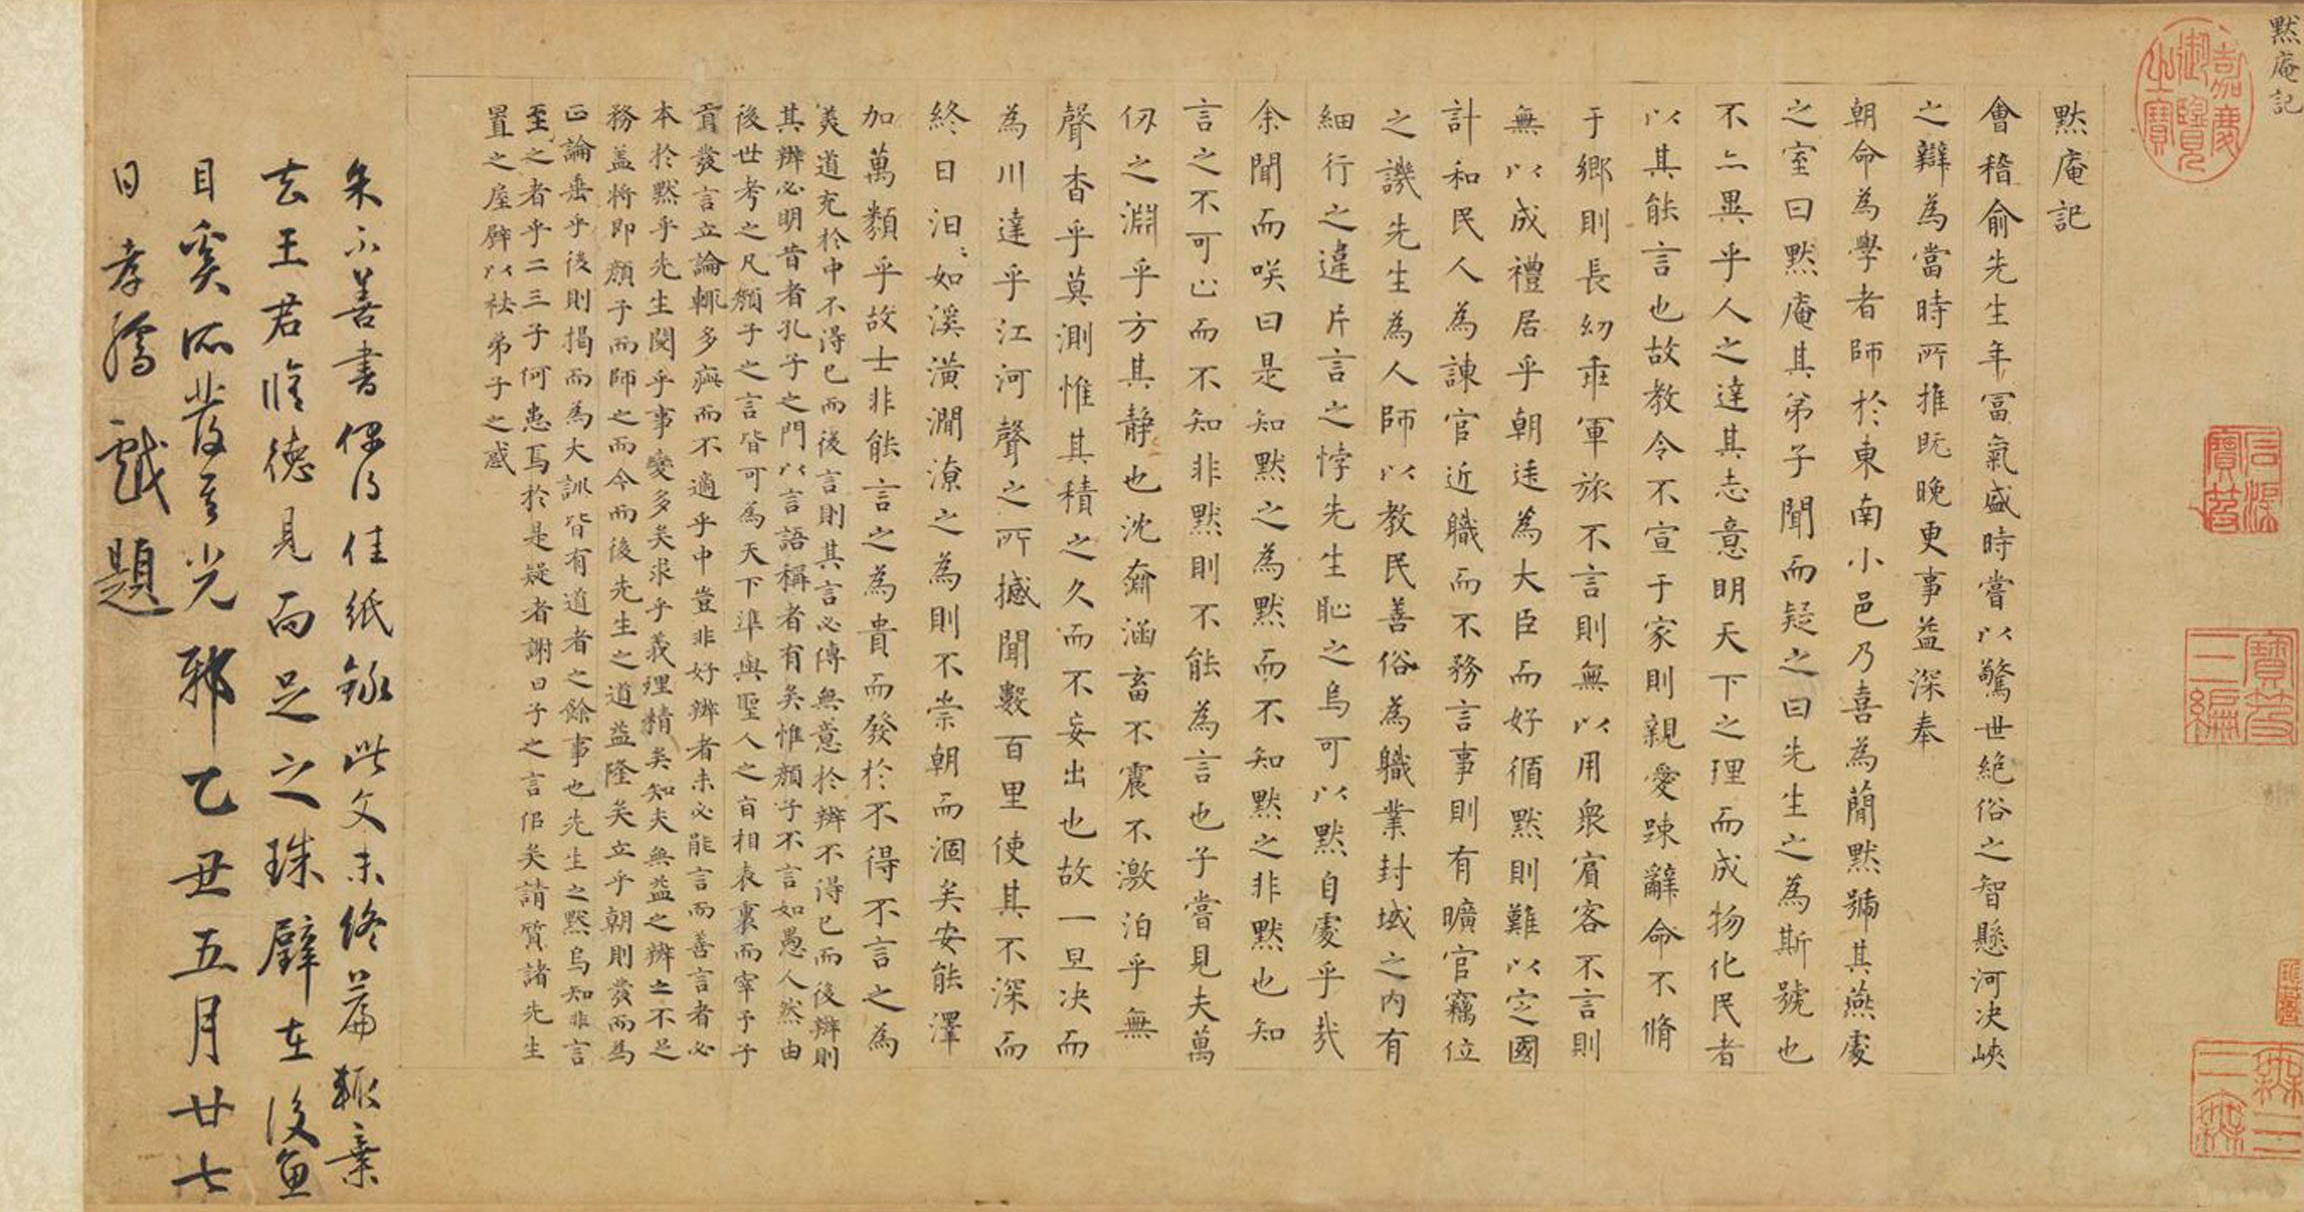 默庵記
默庵記
會稽俞先生年冨氣盛時嘗以驚世絕俗之智懸河决峽
之辯為當時所推既晚更事益深奉
朝命為學者師於東南小邑乃喜為簡默號其燕處
之室曰默庵其弟子聞而疑之曰先生之為斯號也
不亦異乎人之達其志意明天下之理而成物化民者
以其能言也故教令不宣于家則親愛踈辭命不脩
于鄉則長幼乖軍旅不言則無以用衆賔客不言則
無以成禮居乎朝廷為大臣而好循默則難以定國
計和民人為諫官近職而不務言事則有曠官竊位
之譏先生為人師以教民善俗為職業封域之内有
細行之違片言之悖先生恥之烏可以默自處乎哉
余聞而咲曰是知默之為默而不知默之非默也知
言之不可止而不知非默則不能為言也子嘗見夫萬
仞之淵乎方其静也沈齋涵畜不震不激泊乎無
聲杳乎莫測惟其積之久而不妄出也故一旦决而
為川達乎江河聲之所撼聞數百里使其不深而
終日汩汩如溪潢澗潦之為則不崇朝而涸矣安能澤
加萬類乎故士非能言之為貴而發於不得不言之為
美道充於中不得已而後言則其言必傳無意於辯不得已而後辯則
其辯必明昔者孔子之門以言語稱者有矣惟顏子不言如愚人然由
後世考之凡顏子之言皆可為天下準與聖人之言相表裏而宰予子
貢發言立論輒多病而不適乎中豈非好辯者未必能言而善言者必
本於默乎先生閱乎事變多矣求乎義理精矣知夫無益之辯之不足
務盖将即顏子而師之而今而後先生之道益隆矣立乎朝則發而為
正論垂乎後則揭而為大訓皆有道者之餘事也先生之默烏知非言
至之者乎二三子何患焉於是疑者謝曰子之言佀矣請質諸先生
置之屋壁以袪弟子之惑
朱不善書偶得佳紙錄此文未終篇輒棄
去王君脩德見而足之珠璧在後魚
目奚所發其光邪乙丑五月廿七
日孝孺戲題